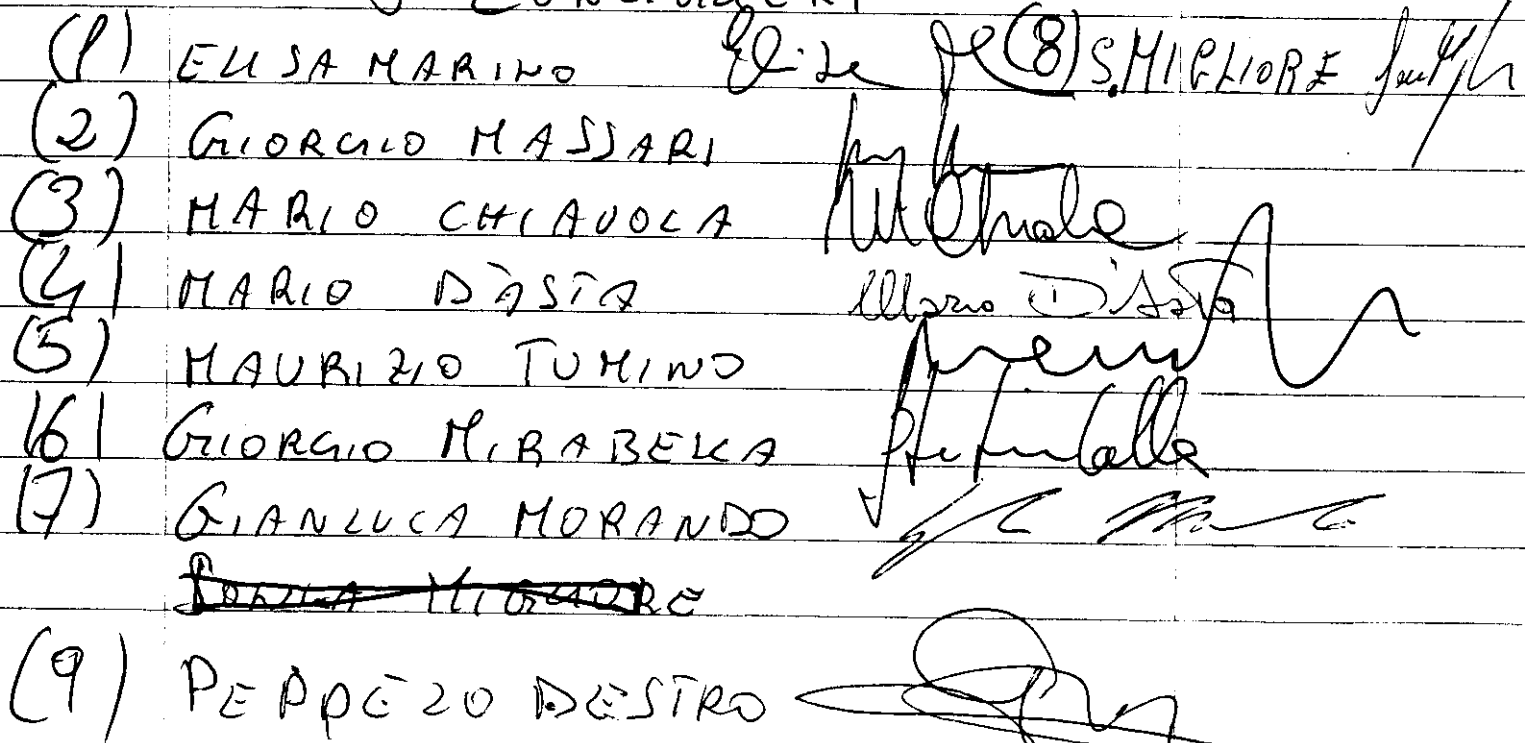 (1) ELISA MARINO Elisa (8) S. MIGLIORE
(2) GIORGIO MASSARI
(3) MARIO CHIAVOLA
(4) MARIO D'ASTA Mario D'Asta
(5) MAURIZIO TUMINO
(6) GIORGIO MIRABELLA
(7) GIANLUCA MORANDO
SONIA MIGLIORE
(9) PEPPE LO DESTRO